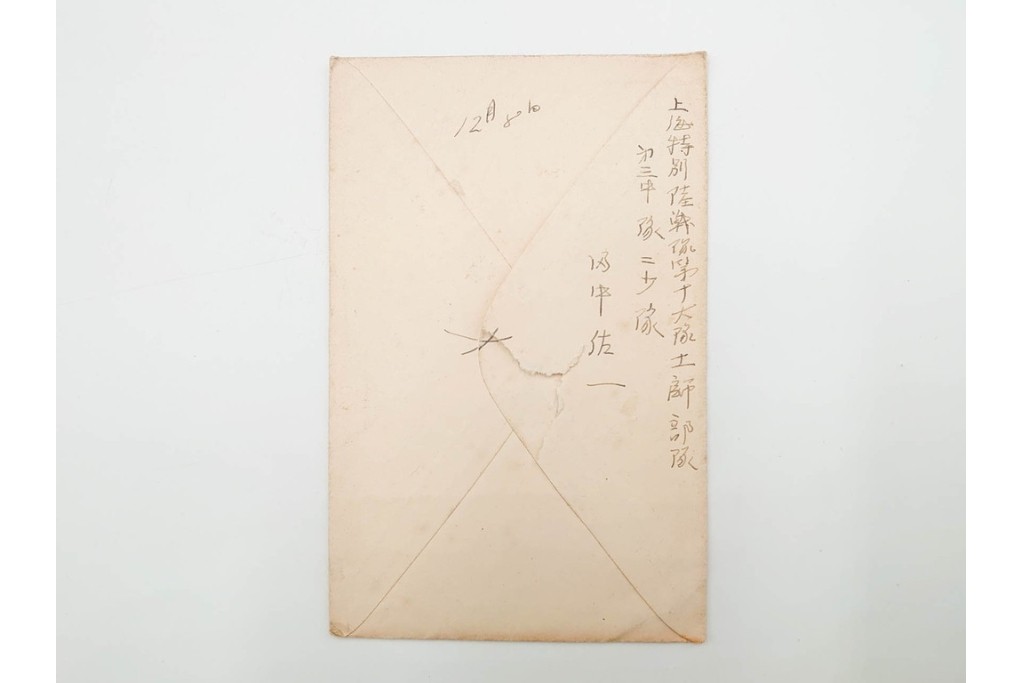 上海特別陸戦隊第十大隊土師部隊
第三中隊二少隊
中佐一
12月8日